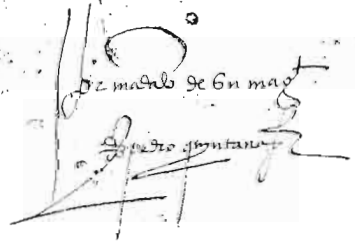 por madado de Su magt
Pedro quintana